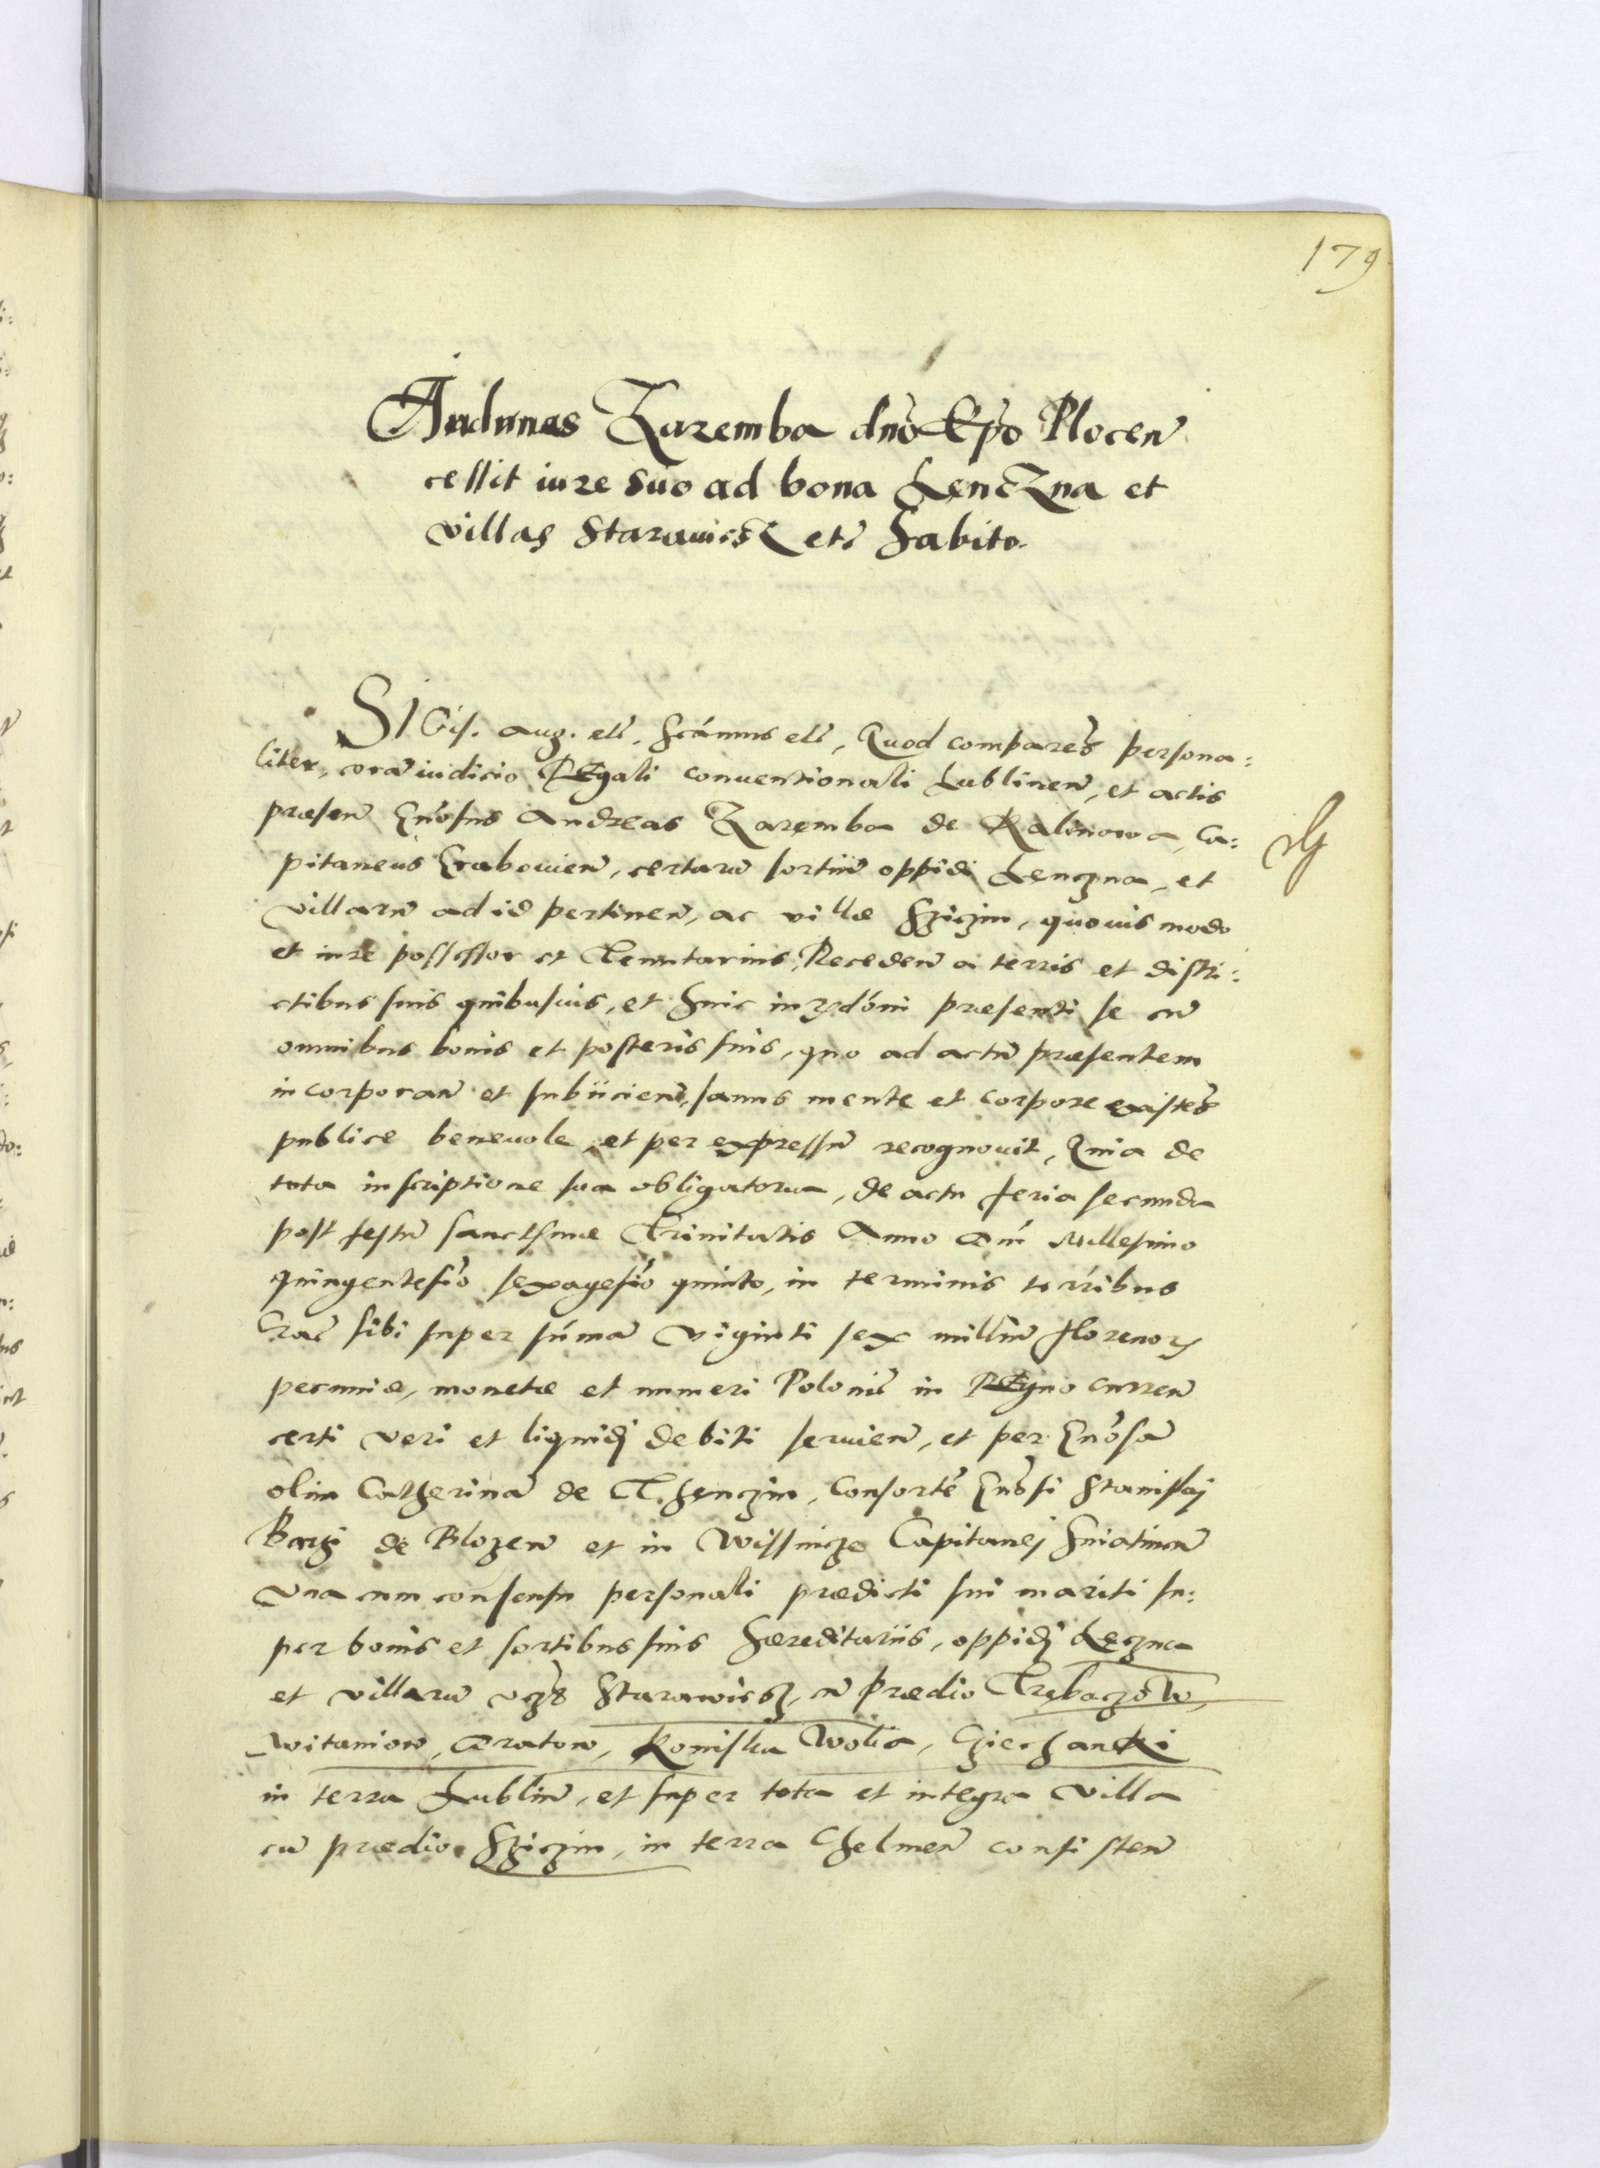 179
Andrüeas Zaremba dno Epo Plocen
cessit iure suo ad bona Lenczna et
villas Starawiesz etc habito.
SIGis. Aug. etc. Scámus etc, Quod comparens persona:
liter, corã iudicio REgali conuentionali Lublinen, et actis
præsen Gnosus Andreas Zaremba de Kalinowa, Ca:
pitaneus Grabouien, certarũ sortiũ oppidi Lenczna, et
villarũ ad id pertinen, ac villæ Sziczim, quouis modo
et iure possessor et Tenutarius, Receden a terris et distri:
ctibus suis quibusuis, et huic iurzdóni præsenti se cũ
omnibus bonis et posteris suis, quo ad actũ præsentem
incorporan et subiicien, sanus mente et corpore existẽs
publice beneuole, et per expressũ recognouit, Quia de
tota inscriptione sua obligatoria, de actu feria secunda
post festũ sanctisimæ Trinitatis Anno Dni Millesimo
quingentesio sexagesio quinto, in terminis terribus
Crac sibi super sũmã viginti sex milliũ florenor
pecuniæ, monetæ et numeri Polonic in REgno curren
certi veri et liquidi debiti seruien, et per Gnosã
olim Catherinã de Thenczin, Consortẽ Gnosi Stanislaj
Barzi de Blozew et in Wissnicze Capitanej Sniatinen
vna cum consensu personali prædicti sui mariti su:
per bonis et sortibus suis hæreditariis, oppidi Leczna
et villarũ vczs Starawiesz, cũ prædio Trębaczow,
witaniow, Dratow, Koniska Wolia, Cziechanki
in terra Lublin, et super tota et integra villa
cũ prædio Sziczim, in terra Chelmen consisten